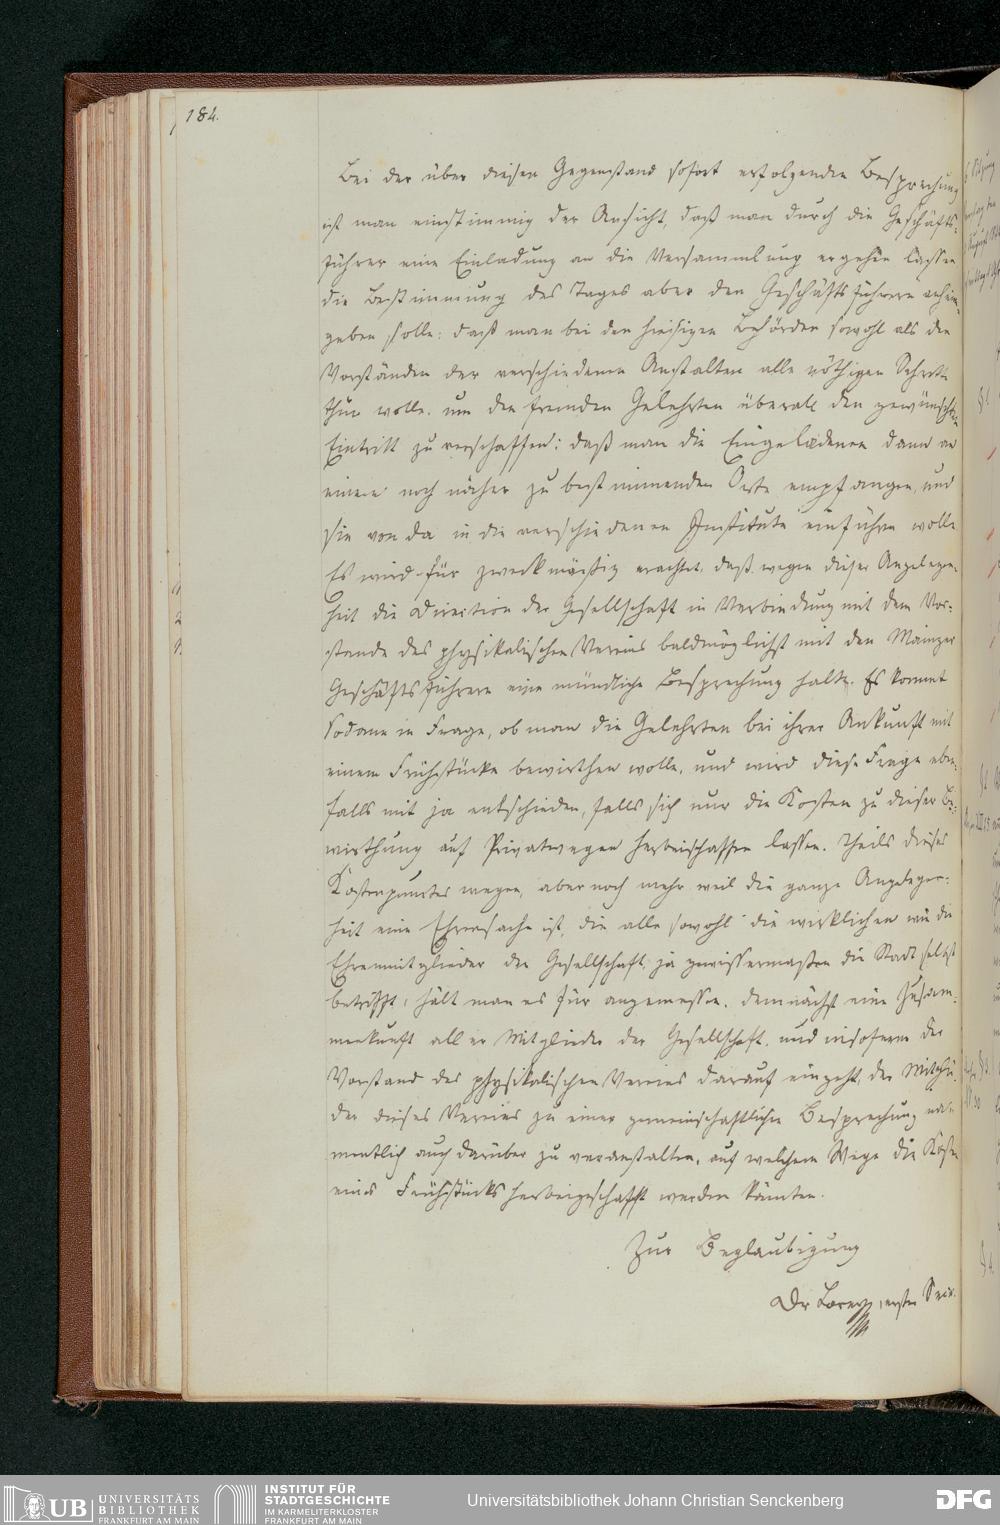 184.
Bei der über diesen Gegenstand sofort erfolgenden Besprechung
ist man einstimmig der Ansicht, daß man durch die Geschäfts-
führer eine Einladung an die Versammlung ergehen lassen
die Bestimmung des Tages aber den Geschäftsführern anheim-
geben solle: daß man bei den hiesigen Behörden sowohl als den
Vorständen der verschiedenen Anstalten alle nöthigen Schritte
thun wolle, um den fremden Gelehrten überall den gewünschten
Eintritt zu verschaffen: daß man die Eingeladenen dann an
einem noch näher zu bestimmenden Orte empfangen, und
sie von da in die verschiedenen Institute einführen wolle
Es wird für zweckmäßig erachtet, daß wegen dieser Angelegen-
heit die Direction der Gesellschaft in Verbindung mit dem Vor-
stande des physikalischen Vereins baldmöglichst mit den Mainzer
Geschäftsführern eine mündliche Besprechung halte. Es kommt
sodann in Frage, ob man die Gelehrten bei ihrer Ankunft mit
einem Frühstücke bewirthen wolle, und wird diese Frage eben-
falls mit ja entschieden, falls sich nur die Kosten zu dieser Be-
wirthung auf Privatwegen herbeischaffen lassen. Theils dieses
Kostenpunctes wegen, aber noch mehr weil die ganze Angelegen-
heit eine Ehrensache ist, die alle sowohl die wirklichen wie die
Ehrenmitglieder der Gesellschaft, ja gewissermaßen die Stadt selbst
betrifft, hält man es für angemessen, demnächst eine Zusam-
menkunft aller Mitglieder der Gesellschaft, und insofern der
Vorstand des physikalischen Vereins darauf eingeht, der Mitglie-
der dieses Vereins zu einer gemeinschaftlichen Besprechung na-
mentlich auch darüber zu veranstalten, auf welchem Wege die Kosten
eines Frühstücks herbeigeschafft werden könnten.
Zur Beglaubigung
Dr Lorey, erster Secr.
UB UNIVERSITÄTS
BIBLIOTHEK
FRANKFURT AM MAIN
INSTITUT FÜR
STADTGESCHICHTE
IM KARMELITERKLOSTER
FRANKFURT AM MAIN
Universitätsbibliothek Johann Christian Senckenberg
DFG